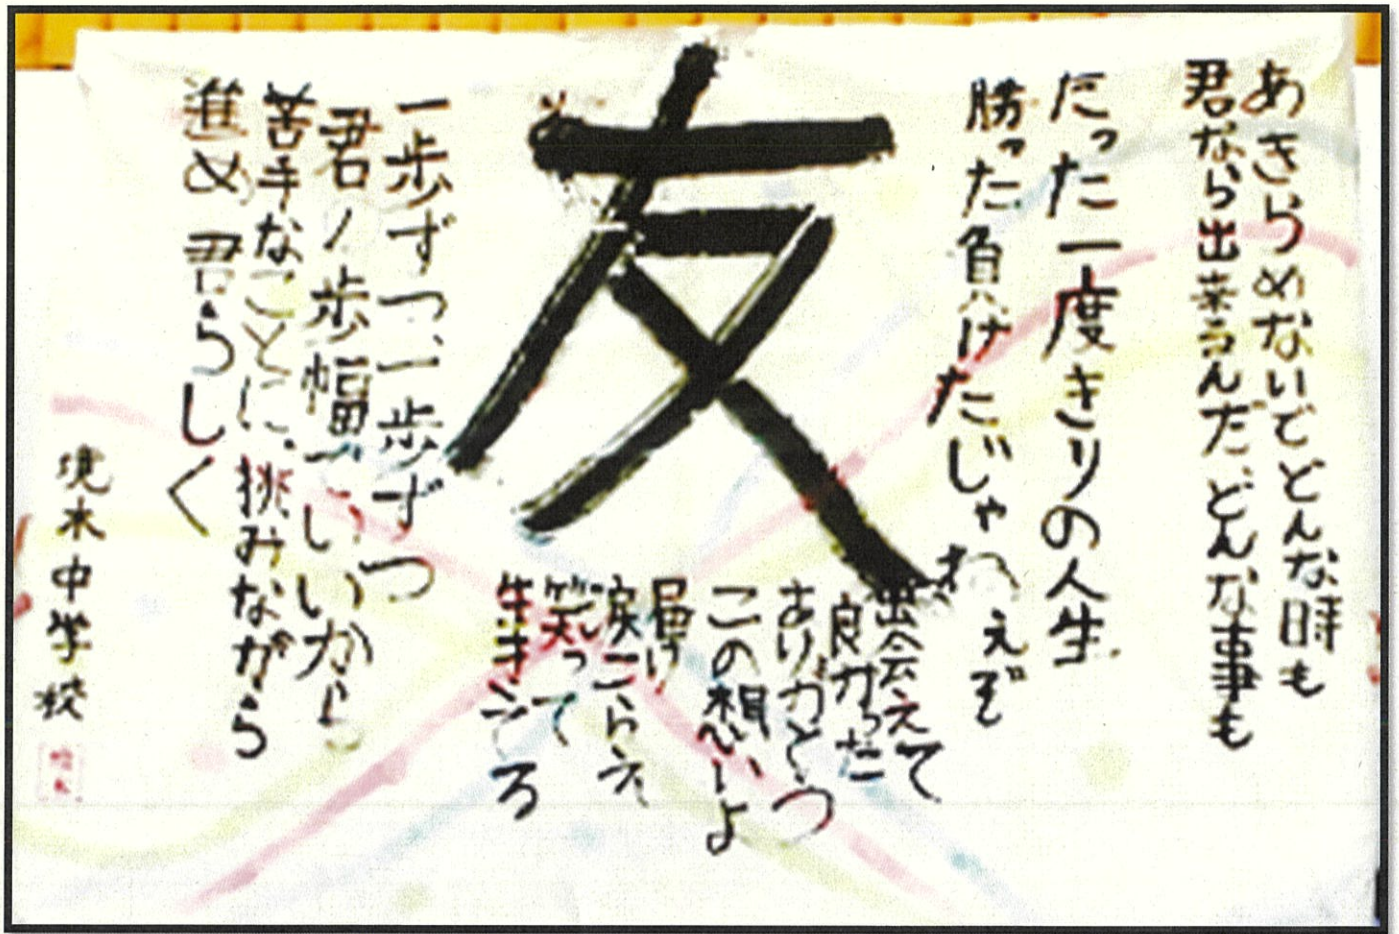 あきらめないでどんな時も
君なら出来るんだどんな事も
たった一度きりの人生
勝った負けたじゃねぇぞ
友
出会えて
良かった
ありがとう
この想いよ
届け
涙こらえ
笑って
生きてる
一歩ずつ、一歩ずつ
君ノ歩幅でいいから
苦手なことに、挑みながら
進め 君らしく
境水中学校